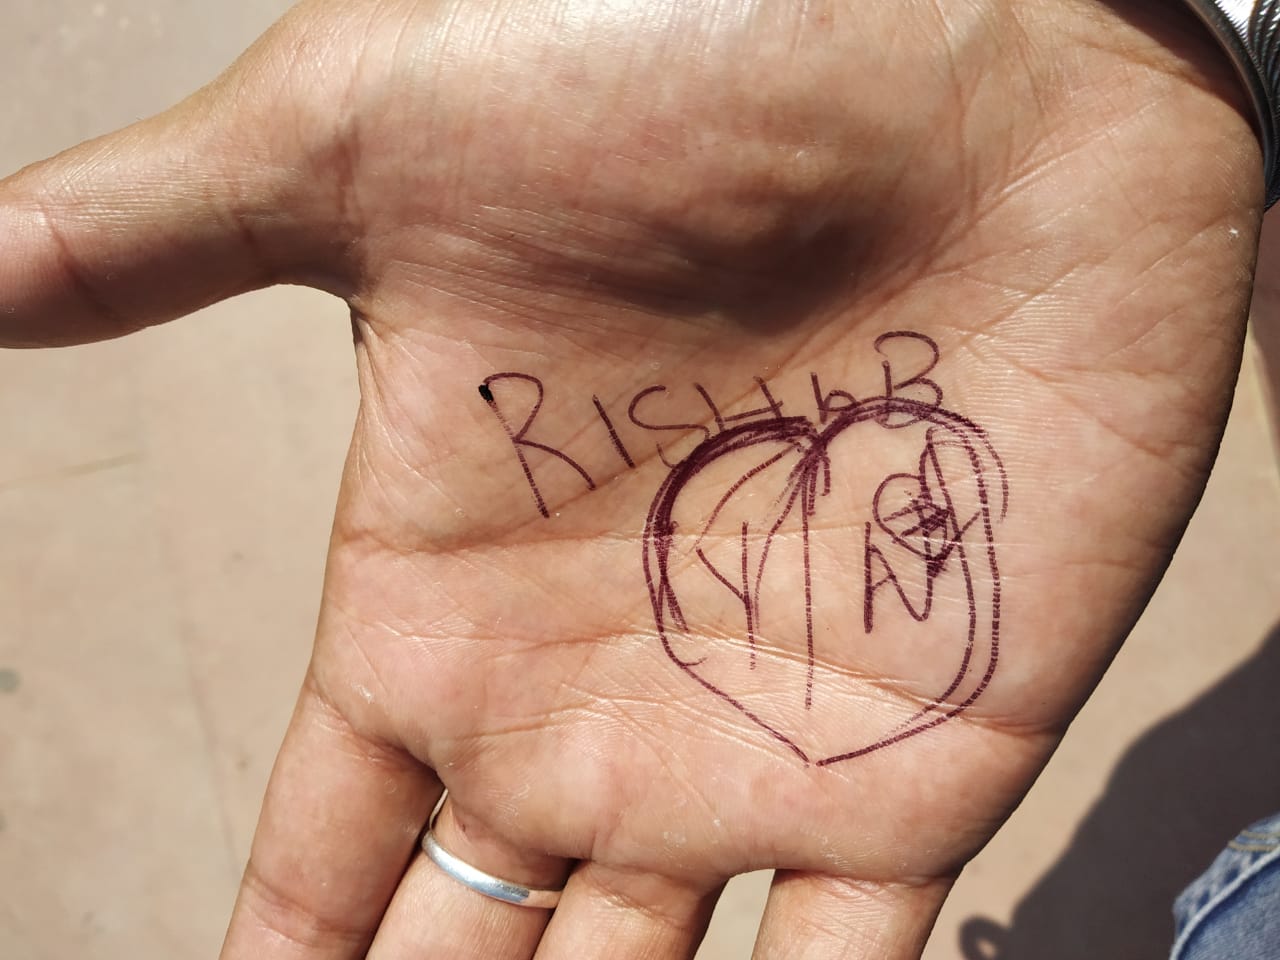 RISHbB
Y A